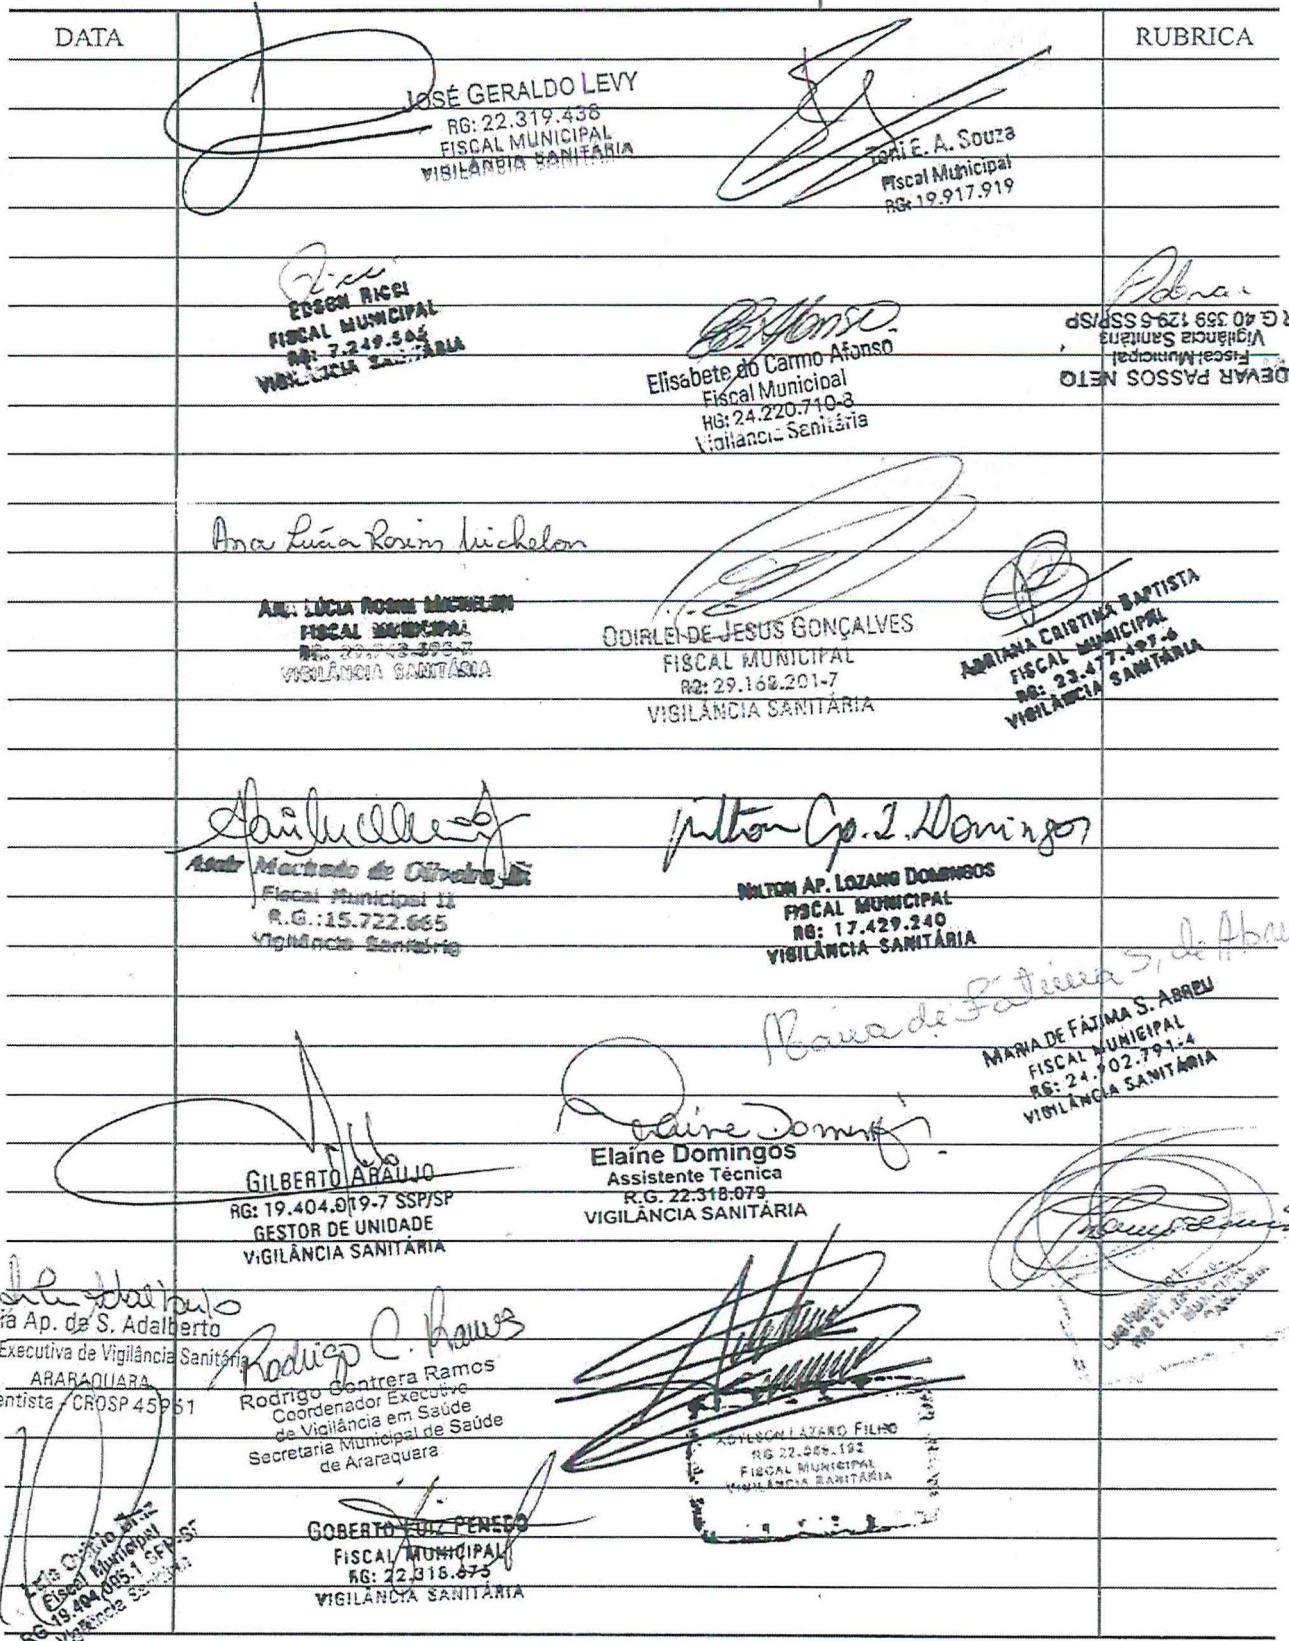 DATA
RUBRICA
JOSÉ GERALDO LEVY
RG: 22.319.438
FISCAL MUNICIPAL
VIGILÂNCIA SANITÁRIA
Toni E. A. Souza
Fiscal Municipal
RG: 19.917.919
Ricci
EDSON RICCI
FISCAL MUNICIPAL
RG: 7.249.565
VIGILÂNCIA SANITÁRIA
Afonso
Elisabete do Carmo Afonso
Fiscal Municipal
RG: 24.220.710-8
Vigilância Sanitária
DEVAR PASSOS NETO
Fiscal Municipal
Vigilância Sanitária
R G: 40 359 129-5 SSP/SP
Ana Lúcia Rosim Michelon
ANA LÚCIA ROSIM MICHELON
FISCAL MUNICIPAL
RG:
VIGILÂNCIA SANITÁRIA
ODIRLEI DE JESUS GONÇALVES
FISCAL MUNICIPAL
RG: 29.168.201-7
VIGILÂNCIA SANITÁRIA
ADRIANA CRISTINA BAPTISTA
FISCAL MUNICIPAL
RG: 23.477.497-6
VIGILÂNCIA SANITÁRIA
Machado de Oliveira Jr.
Fiscal Municipal II
R.G.:15.722.665
Vigilância Sanitária
Nilton Ap. L. Domingos
NILTON AP. LOZANO DOMINGOS
FISCAL MUNICIPAL
RG: 17.429.240
VIGILÂNCIA SANITÁRIA
Maria de Fátima S. de Abreu
MARIA DE FÁTIMA S. ABREU
FISCAL MUNICIPAL
RG: 24.902.791-4
VIGILÂNCIA SANITÁRIA
GILBERTO ARAUJO
RG: 19.404.019-7 SSP/SP
GESTOR DE UNIDADE
VIGILÂNCIA SANITÁRIA
Elaine Domingos
Elaine Domingos
Assistente Técnica
R.G. 22.318.079
VIGILÂNCIA SANITÁRIA
Adalberto
ia Ap. de S. Adalberto
Executiva de Vigilância Sanitária
ARARAQUARA
entista - CROSP 45961
Rodrigo C. Ramos
Rodrigo Contrera Ramos
Coordenador Executivo
de Vigilância em Saúde
Secretaria Municipal de Saúde
de Araraquara
LAZARO FILHO
RG
FISCAL MUNICIPAL
VIGILÂNCIA SANITÁRIA
Fiscal Municipal
RG 19.404.005-1
Vigilância Sanitária
GOBERTO LUIZ PENEDO
FISCAL MUNICIPAL
RG: 22.318.675
VIGILÂNCIA SANITÁRIA